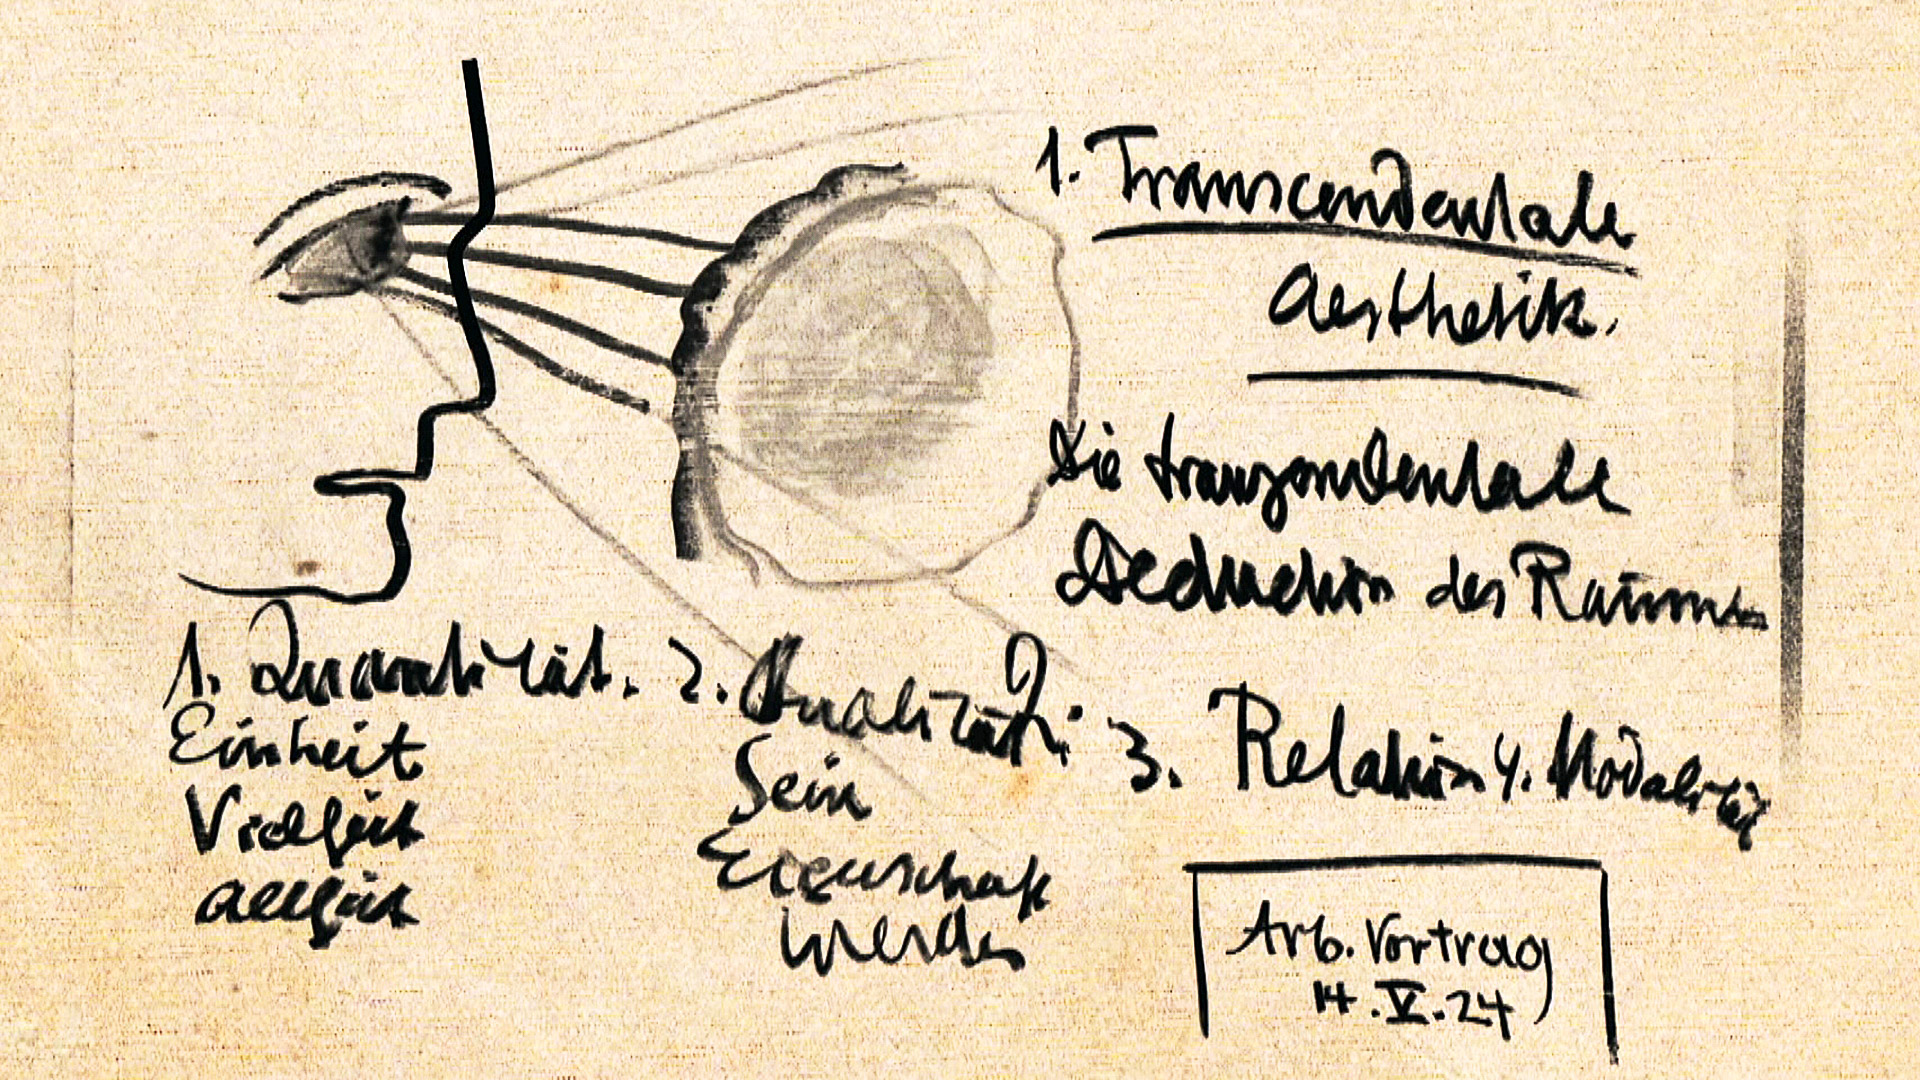 1. Transcendentale
Aesthetik.
Die tranzendentale
Deduction des Raumes
1. Quantität. 2. Qualität. 3. Relation 4. Modalität
Einheit
Vielheit
Allheit
Sein
Eigenschaft
werden
Arb. Vortrag
14.V.24